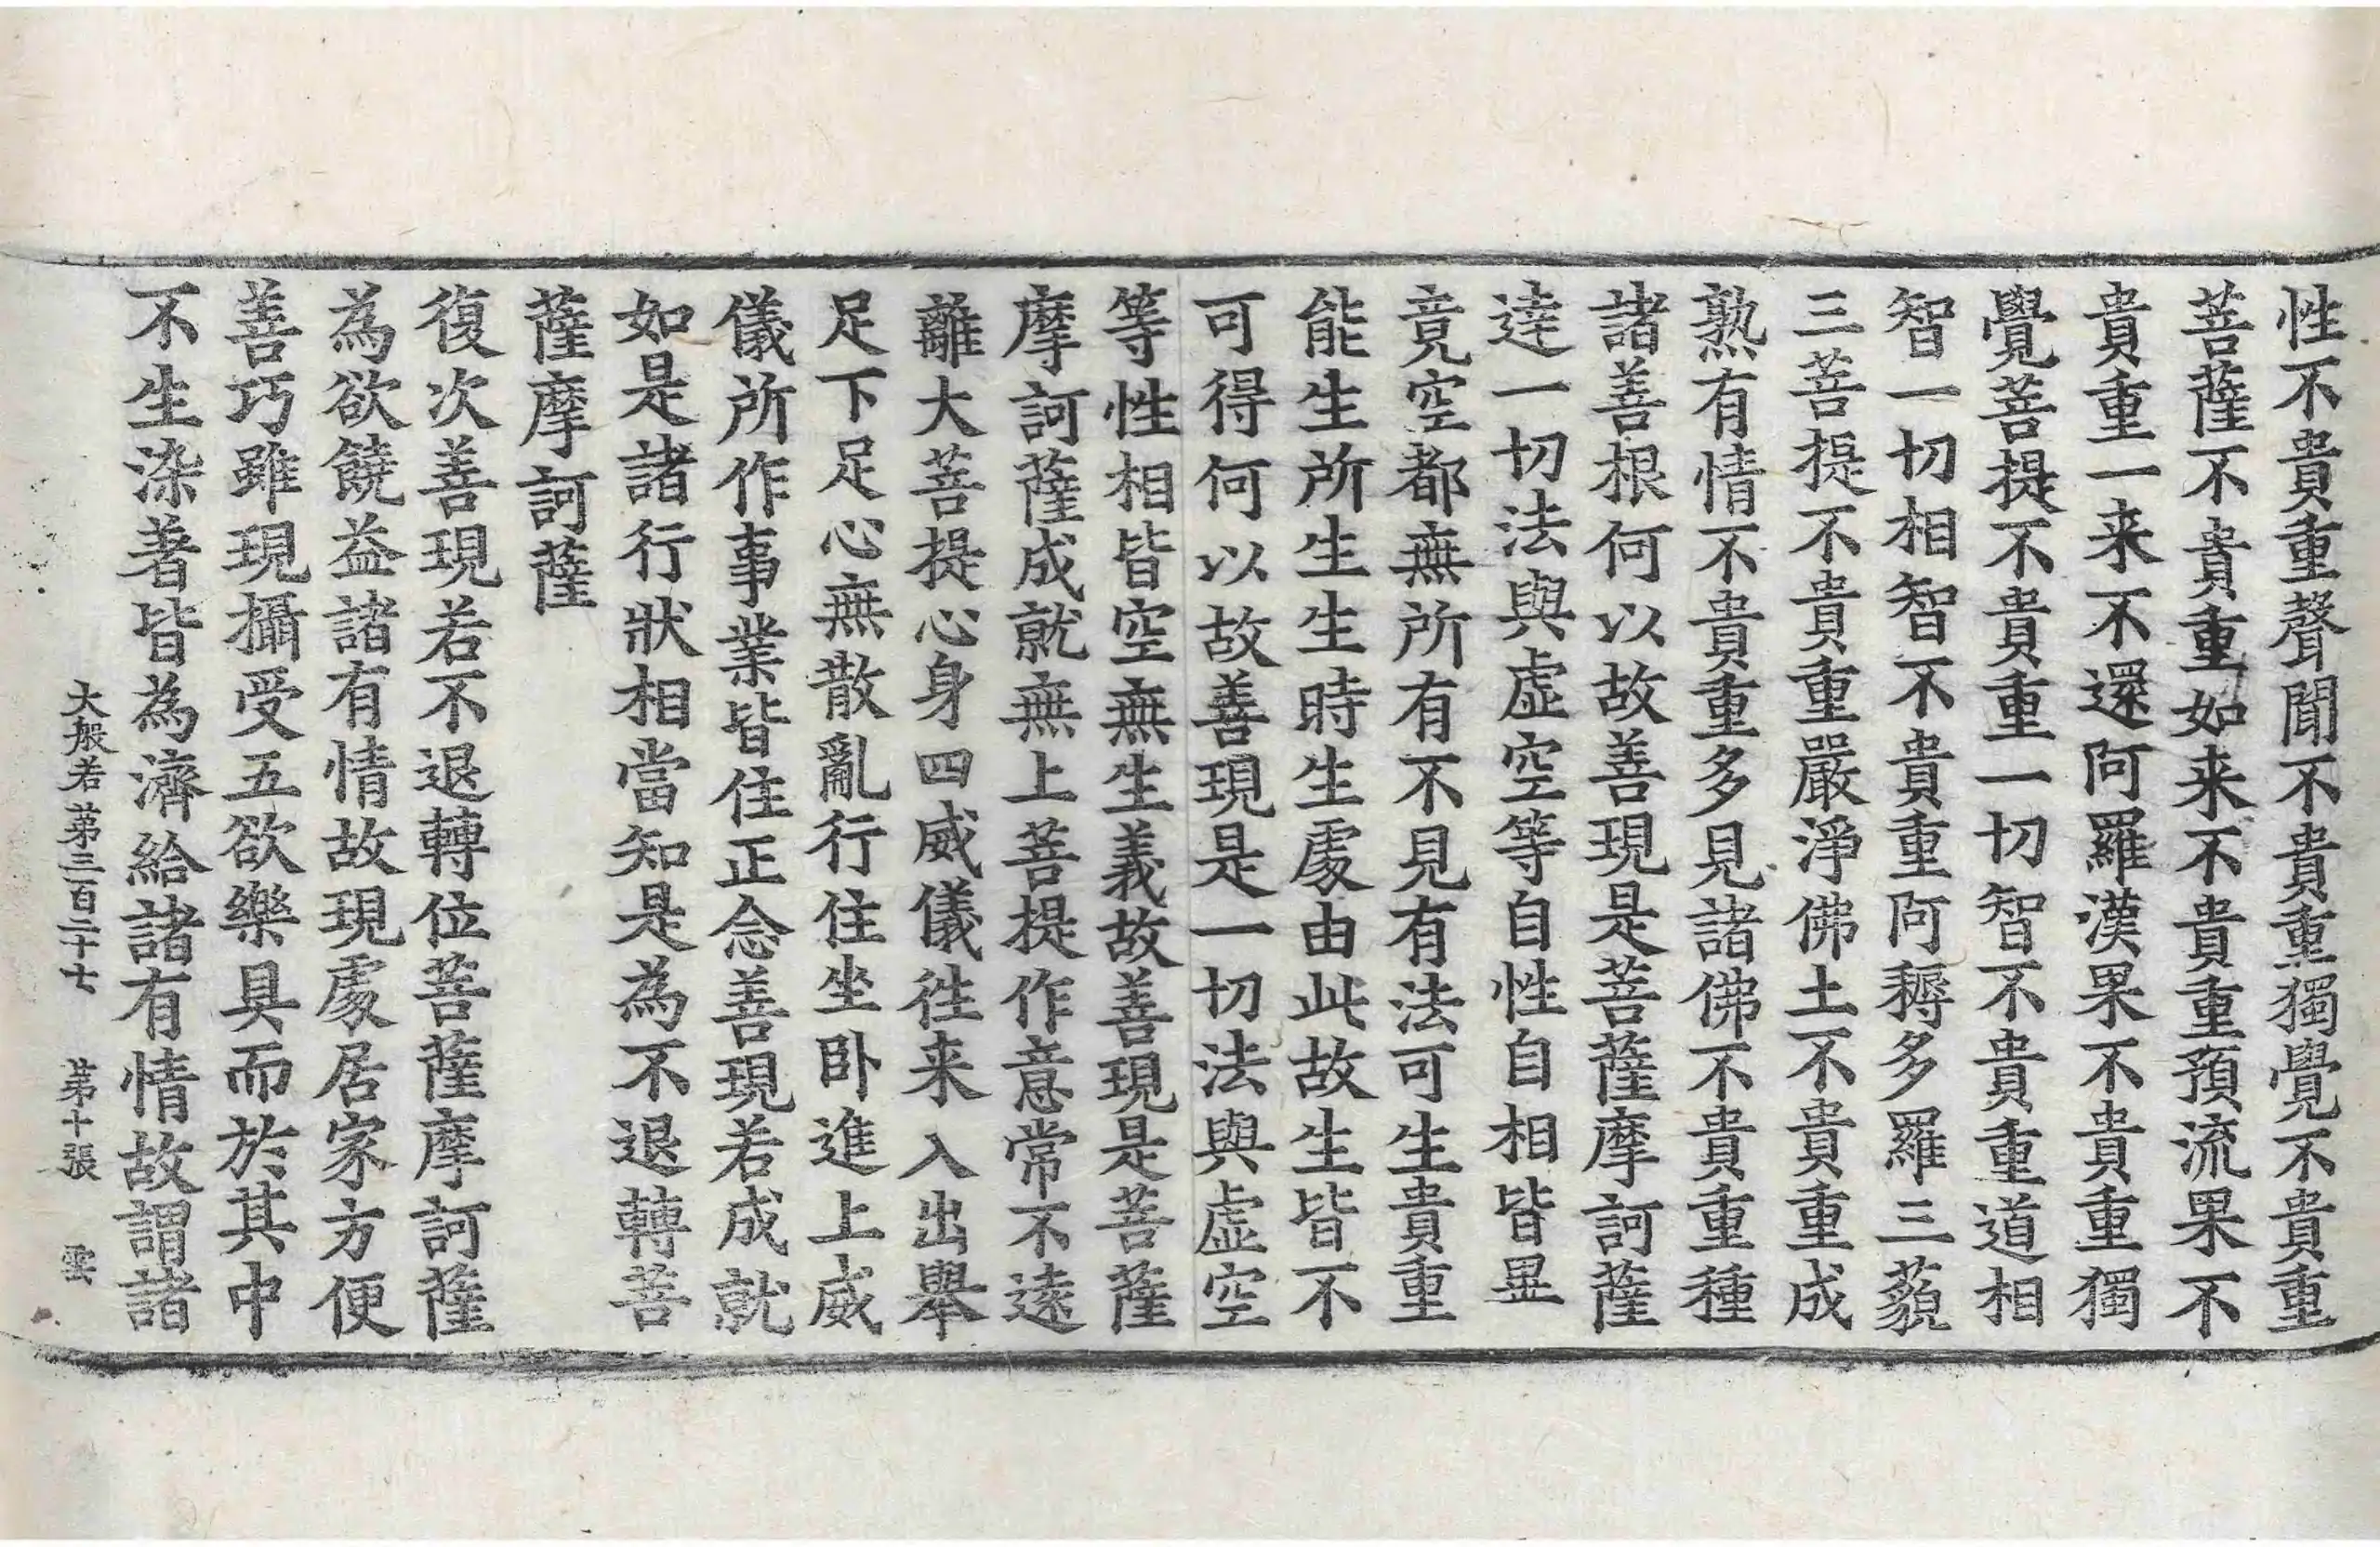 性不貴重聲聞不貴重獨覺不貴重
菩薩不貴重如来不貴重預流果不
貴重一来不還阿羅漢果不貴重獨
覺菩提不貴重一切智不貴重道相
智一切相智不貴重阿耨多羅三藐
三菩提不貴重嚴淨佛土不貴重成
熟有情不貴重多見諸佛不貴重種
諸善根何以故善現是菩薩摩訶薩
達一切法與虛空等自性自相皆畢
竟空都無所有不見有法可生貴重
能生所生生時生處由此故生皆不
可得何以故善現是一切法與虛空
等性相皆空無生義故善現是菩薩
摩訶薩成就無上菩提作意常不遠
離大菩提心身四威儀徃来入出舉
足下足心無散亂行住坐卧進上威
儀所作事業皆住正念善現若成就
如是諸行狀相當知是為不退轉菩
薩摩訶薩
復次善現若不退轉位菩薩摩訶薩
為欲饒益諸有情故現處居家方便
善巧雖現攝受五欲樂具而於其中
不生染著皆為濟給諸有情故謂諸
大般若第三百二十七 第十張 雲